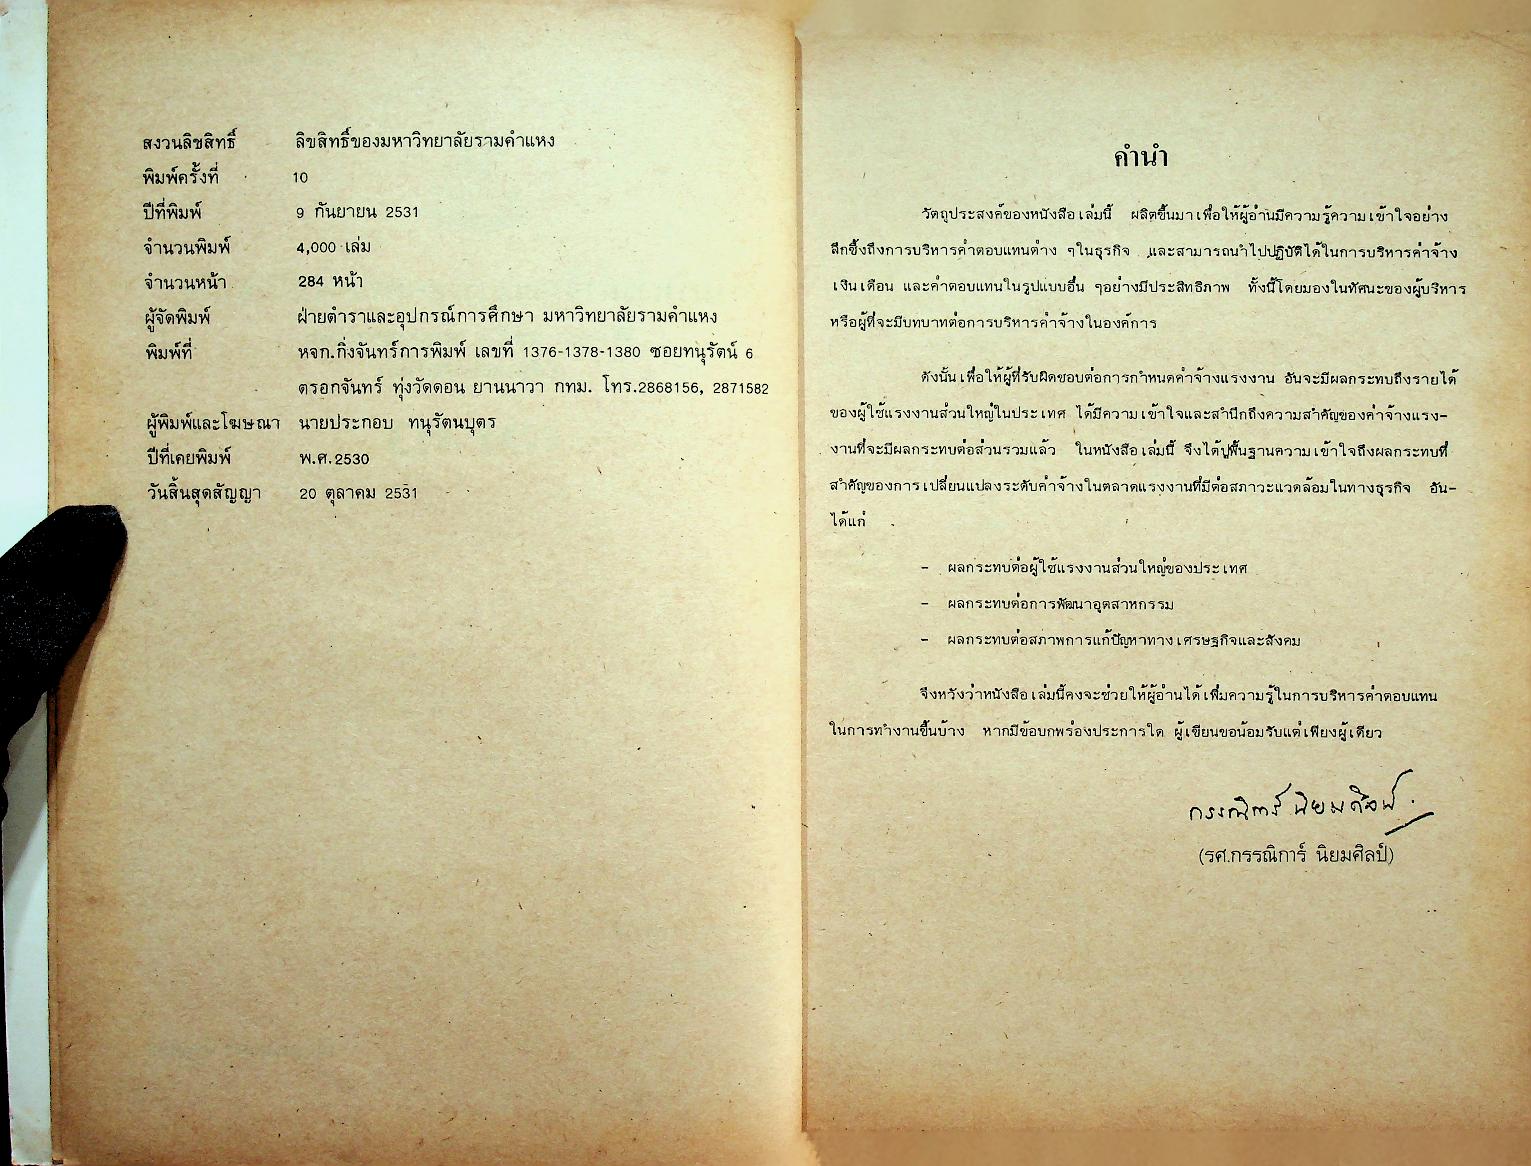 สงวนลิขสิทธิ์ ลิขสิทธิ์ของมหาวิทยาลัยรามคำแหง
พิมพ์ครั้งที่ 10
ปีที่พิมพ์ 9 กันยายน 2531
จำนวนพิมพ์ 4,000 เล่ม
จำนวนหน้า 284 หน้า
ผู้จัดพิมพ์ ฝ่ายตำราและอุปกรณ์การศึกษา มหาวิทยาลัยรามคำแหง
พิมพ์ที่ หจก.กิ่งจันทร์การพิมพ์ เลขที่ 1376-1378-1380 ซอยทนุรัตน์ 6
ตรอกจันทร์ ทุ่งวัดดอน ยานนาวา กทม. โทร.2868156, 2871582
ผู้พิมพ์และโฆษณา นายประกอบ ทนุรัตนบุตร
ปีที่เคยพิมพ์ พ.ศ.2530
วันสิ้นสุดสัญญา 20 ตุลาคม 2531
คำนำ
วัตถุประสงค์ของหนังสือเล่มนี้ ผลิตขึ้นมาเพื่อให้ผู้อ่านมีความรู้ความเข้าใจอย่าง
ลึกซึ้งถึงการบริหารค่าตอบแทนต่าง ๆในธุรกิจ และสามารถนำไปปฏิบัติได้ในการบริหารค่าจ้าง
เงินเดือน และค่าตอบแทนในรูปแบบอื่น ๆอย่างมีประสิทธิภาพ ทั้งนี้โดยมองในทัศนะของผู้บริหาร
หรือผู้ที่จะมีบทบาทต่อการบริหารค่าจ้างในองค์การ
ดังนั้นเพื่อให้ผู้ที่รับผิดชอบต่อการกำหนดค่าจ้างแรงงาน อันจะมีผลกระทบถึงรายได้
ของผู้ใช้แรงงานส่วนใหญ่ในประเทศ ได้มีความเข้าใจและสำนึกถึงความสำคัญของค่าจ้างแรง-
งานที่จะมีผลกระทบต่อส่วนรวมแล้ว ในหนังสือเล่มนี้ จึงได้ปูพื้นฐานความเข้าใจถึงผลกระทบที่
สำคัญของการเปลี่ยนแปลงระดับค่าจ้างในตลาดแรงงานที่มีต่อสภาวะแวดล้อมในทางธุรกิจ อัน-
ได้แก่
- ผลกระทบต่อผู้ใช้แรงงานส่วนใหญ่ของประเทศ
- ผลกระทบต่อการพัฒนาอุตสาหกรรม
- ผลกระทบต่อสภาพการแก้ปัญหาทางเศรษฐกิจและสังคม
จึงหวังว่าหนังสือเล่มนี้คงจะช่วยให้ผู้อ่านได้เพิ่มความรู้ในการบริหารค่าตอบแทน
ในการทำงานขึ้นบ้าง หากมีข้อบกพร่องประการใด ผู้เขียนขอน้อมรับแต่เพียงผู้เดียว
กรรณิการ์ นิยมศิลป์
(รศ.กรรณิการ์ นิยมศิลป์)